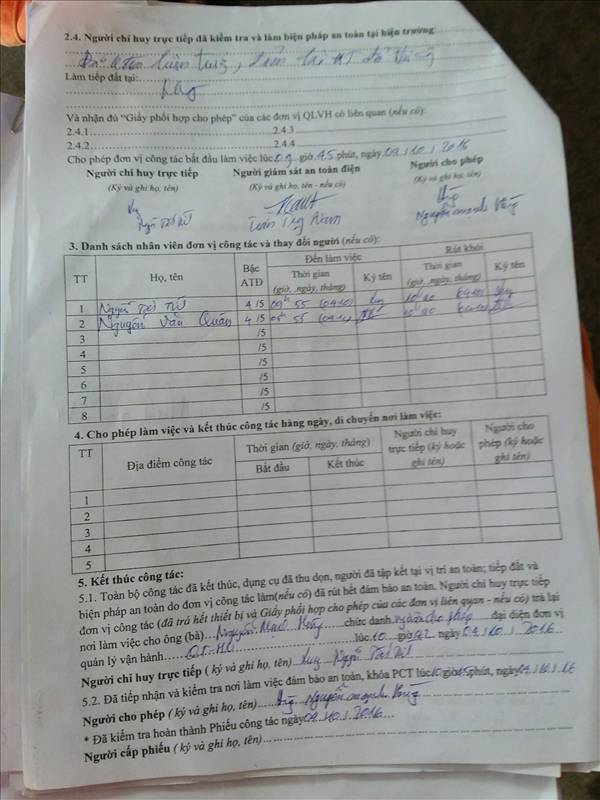 2.4. Người chỉ huy trực tiếp đã kiểm tra và làm biện pháp an toàn tại hiện trường
Làm tiếp đất tại:
Và nhận đủ "Giấy phối hợp cho phép" của các đơn vị QLVH có liên quan (nếu có):
2.4.1 2.4.3
2.4.2 2.4.4
Cho phép đơn vị công tác bắt đầu làm việc lúc 09 giờ 45 phút, ngày 04 / 10 / 2016
Người chỉ huy trực tiếp Người giám sát an toàn điện Người cho phép
(Ký và ghi họ, tên) (Ký và ghi họ, tên - nếu có) (Ký và ghi họ, tên)
Nguyễn Mạnh
3. Danh sách nhân viên đơn vị công tác và thay đổi người (nếu có):
TT Họ, tên Bậc ATĐ Đến làm việc Rút khỏi
Thời gian (giờ, ngày, tháng) Ký tên Thời gian (giờ, ngày, tháng) Ký tên
1 4 /5
2 Nguyễn Văn Quán 4 /5
3 /5
4 /5
5 /5
6 /5
7 /5
8 /5
4. Cho phép làm việc và kết thúc công tác hàng ngày, di chuyển nơi làm việc:
TT Địa điểm công tác Thời gian (giờ, ngày, tháng) Người chỉ huy trực tiếp (ký hoặc ghi tên) Người cho phép (ký hoặc ghi tên)
Bắt đầu Kết thúc
1
2
3
4
5
5. Kết thúc công tác:
5.1. Toàn bộ công tác đã kết thúc, dụng cụ đã thu dọn, người đã tập kết tại vị trí an toàn; tiếp đất và
biện pháp an toàn do đơn vị công tác làm(nếu có) đã rút hết đảm bảo an toàn. Người chỉ huy trực tiếp
đơn vị công tác (đã trả hết thiết bị và Giấy phối hợp cho phép của các đơn vị liên quan - nếu có) trả lại
nơi làm việc cho ông (bà) Nguyễn Mạnh chức danh người cho phép đại diện đơn vị
quản lý vận hành lúc 10 giờ ngày 04 / 10 / 2016
Người chỉ huy trực tiếp ( ký và ghi họ, tên)
5.2. Đã tiếp nhận và kiểm tra nơi làm việc đảm bảo an toàn, khóa PCT lúc giờ phút, ngày
Người cho phép ( ký và ghi họ, tên) Nguyễn Mạnh
* Đã kiểm tra hoàn thành Phiếu công tác ngày 04 / 10 / 2016
Người cấp phiếu ( ký và ghi họ, tên)